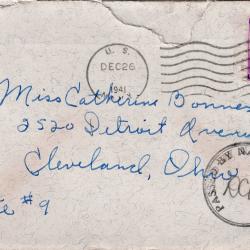 U. S.
DEC 26
1941
Miss Catherine Bonnes
2520 Detroit Avenu
Cleveland, Ohio
te #9
PASSED BY N